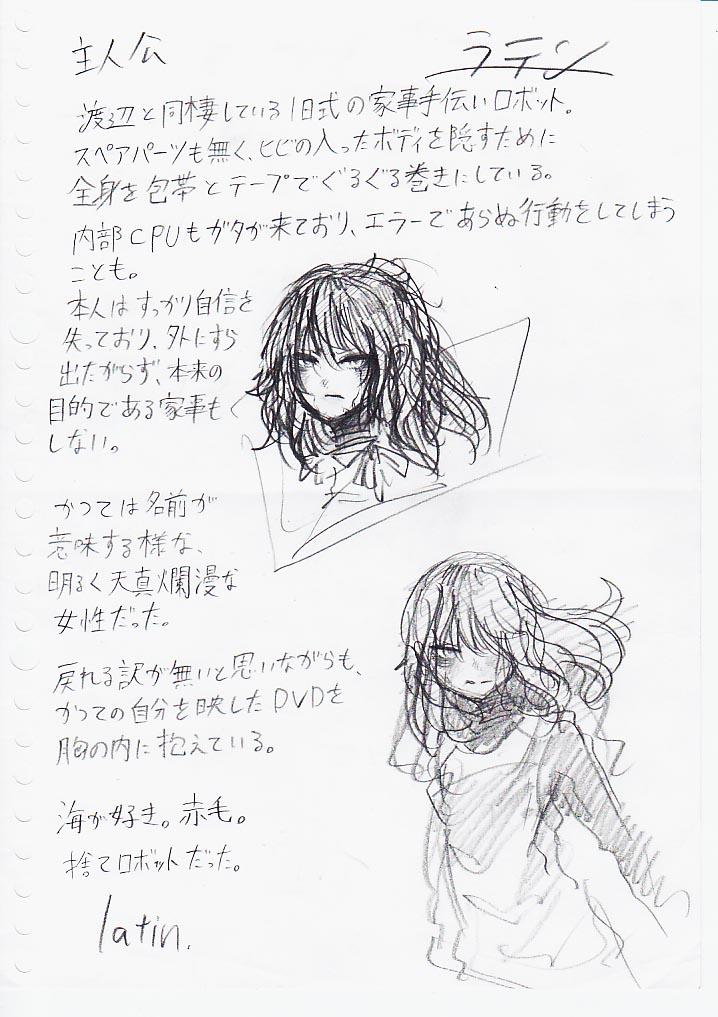 主人公
ラテン
渡辺と同棲している旧式の家事手伝いロボット。
スペアパーツも無く、ヒビの入ったボディを隠すために
全身を包帯とテープでぐるぐる巻きにしている。
内部CPUもガタが来ており、エラーであらぬ行動をしてしまう
ことも。
本人はすっかり自信を
失っており、外にすら
出たがらず、本来の
目的である家事も
しない。
かつては名前が
意味する様な、
明るく天真爛漫な
女性だった。
戻れる訳が無いと思いながらも、
かつての自分を映したDVDを
胸の内に抱えている。
海が好き。赤毛。
捨てロボットだった。
latin.